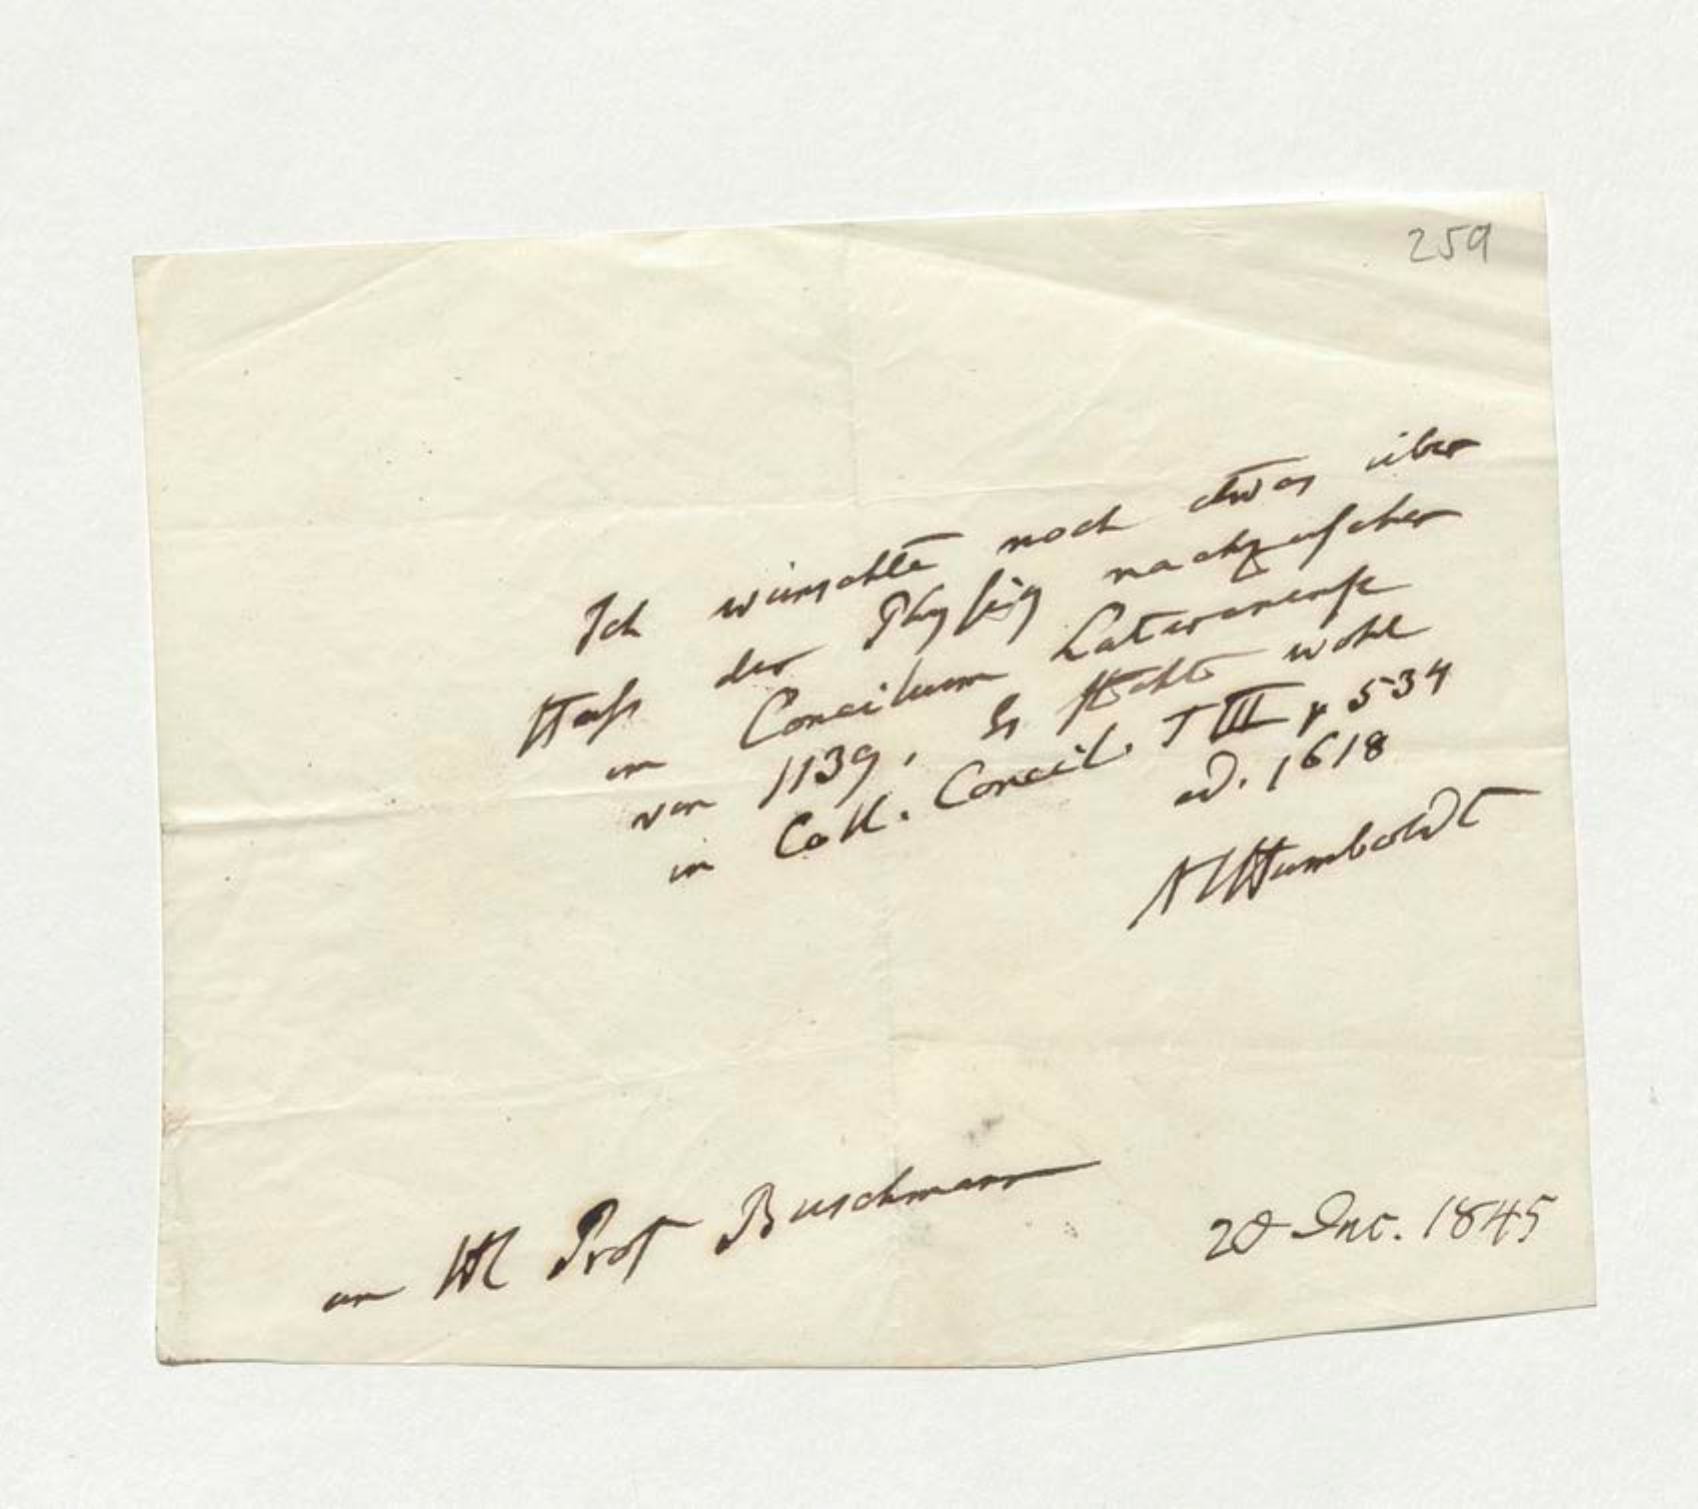 259
Ich wünschte noch etwas über
Haß der Physik nachzusehen
im Concilium Lateranense
von 1139, Es steht wohl
in Coll. Concil. T III p 534
ed. 1618
AvHumboldt
an H Prof Buschmann
20 Dec. 1845